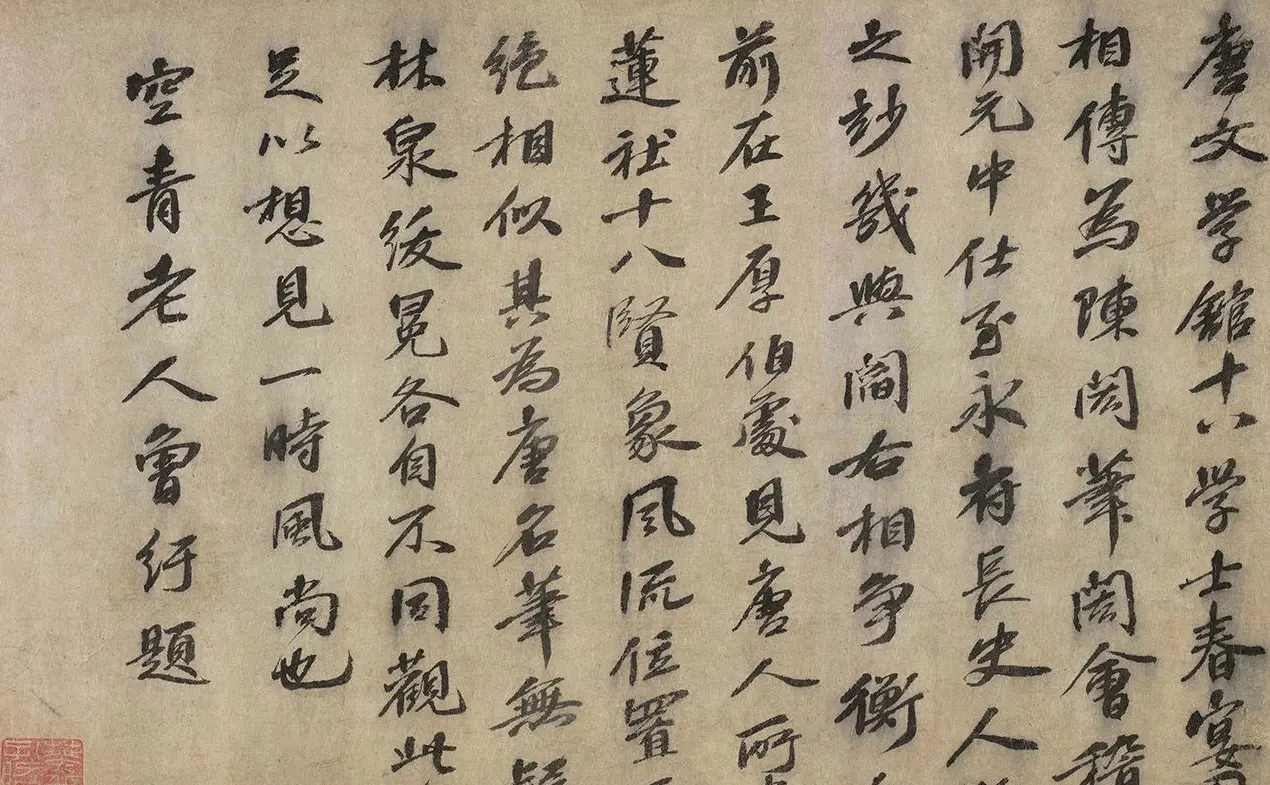 唐文学館十八学士春宴
相傳為陳閎筆閎會稽
開元中仕至永府長史人
之妙幾與閻右相爭衡
前在王厚伯處見唐人所
蓮社十八賢象風流位置
絕相似其為唐名筆無疑
林泉綬冕各自不同觀此
足以想見一時風尚也
空青老人曾紆題